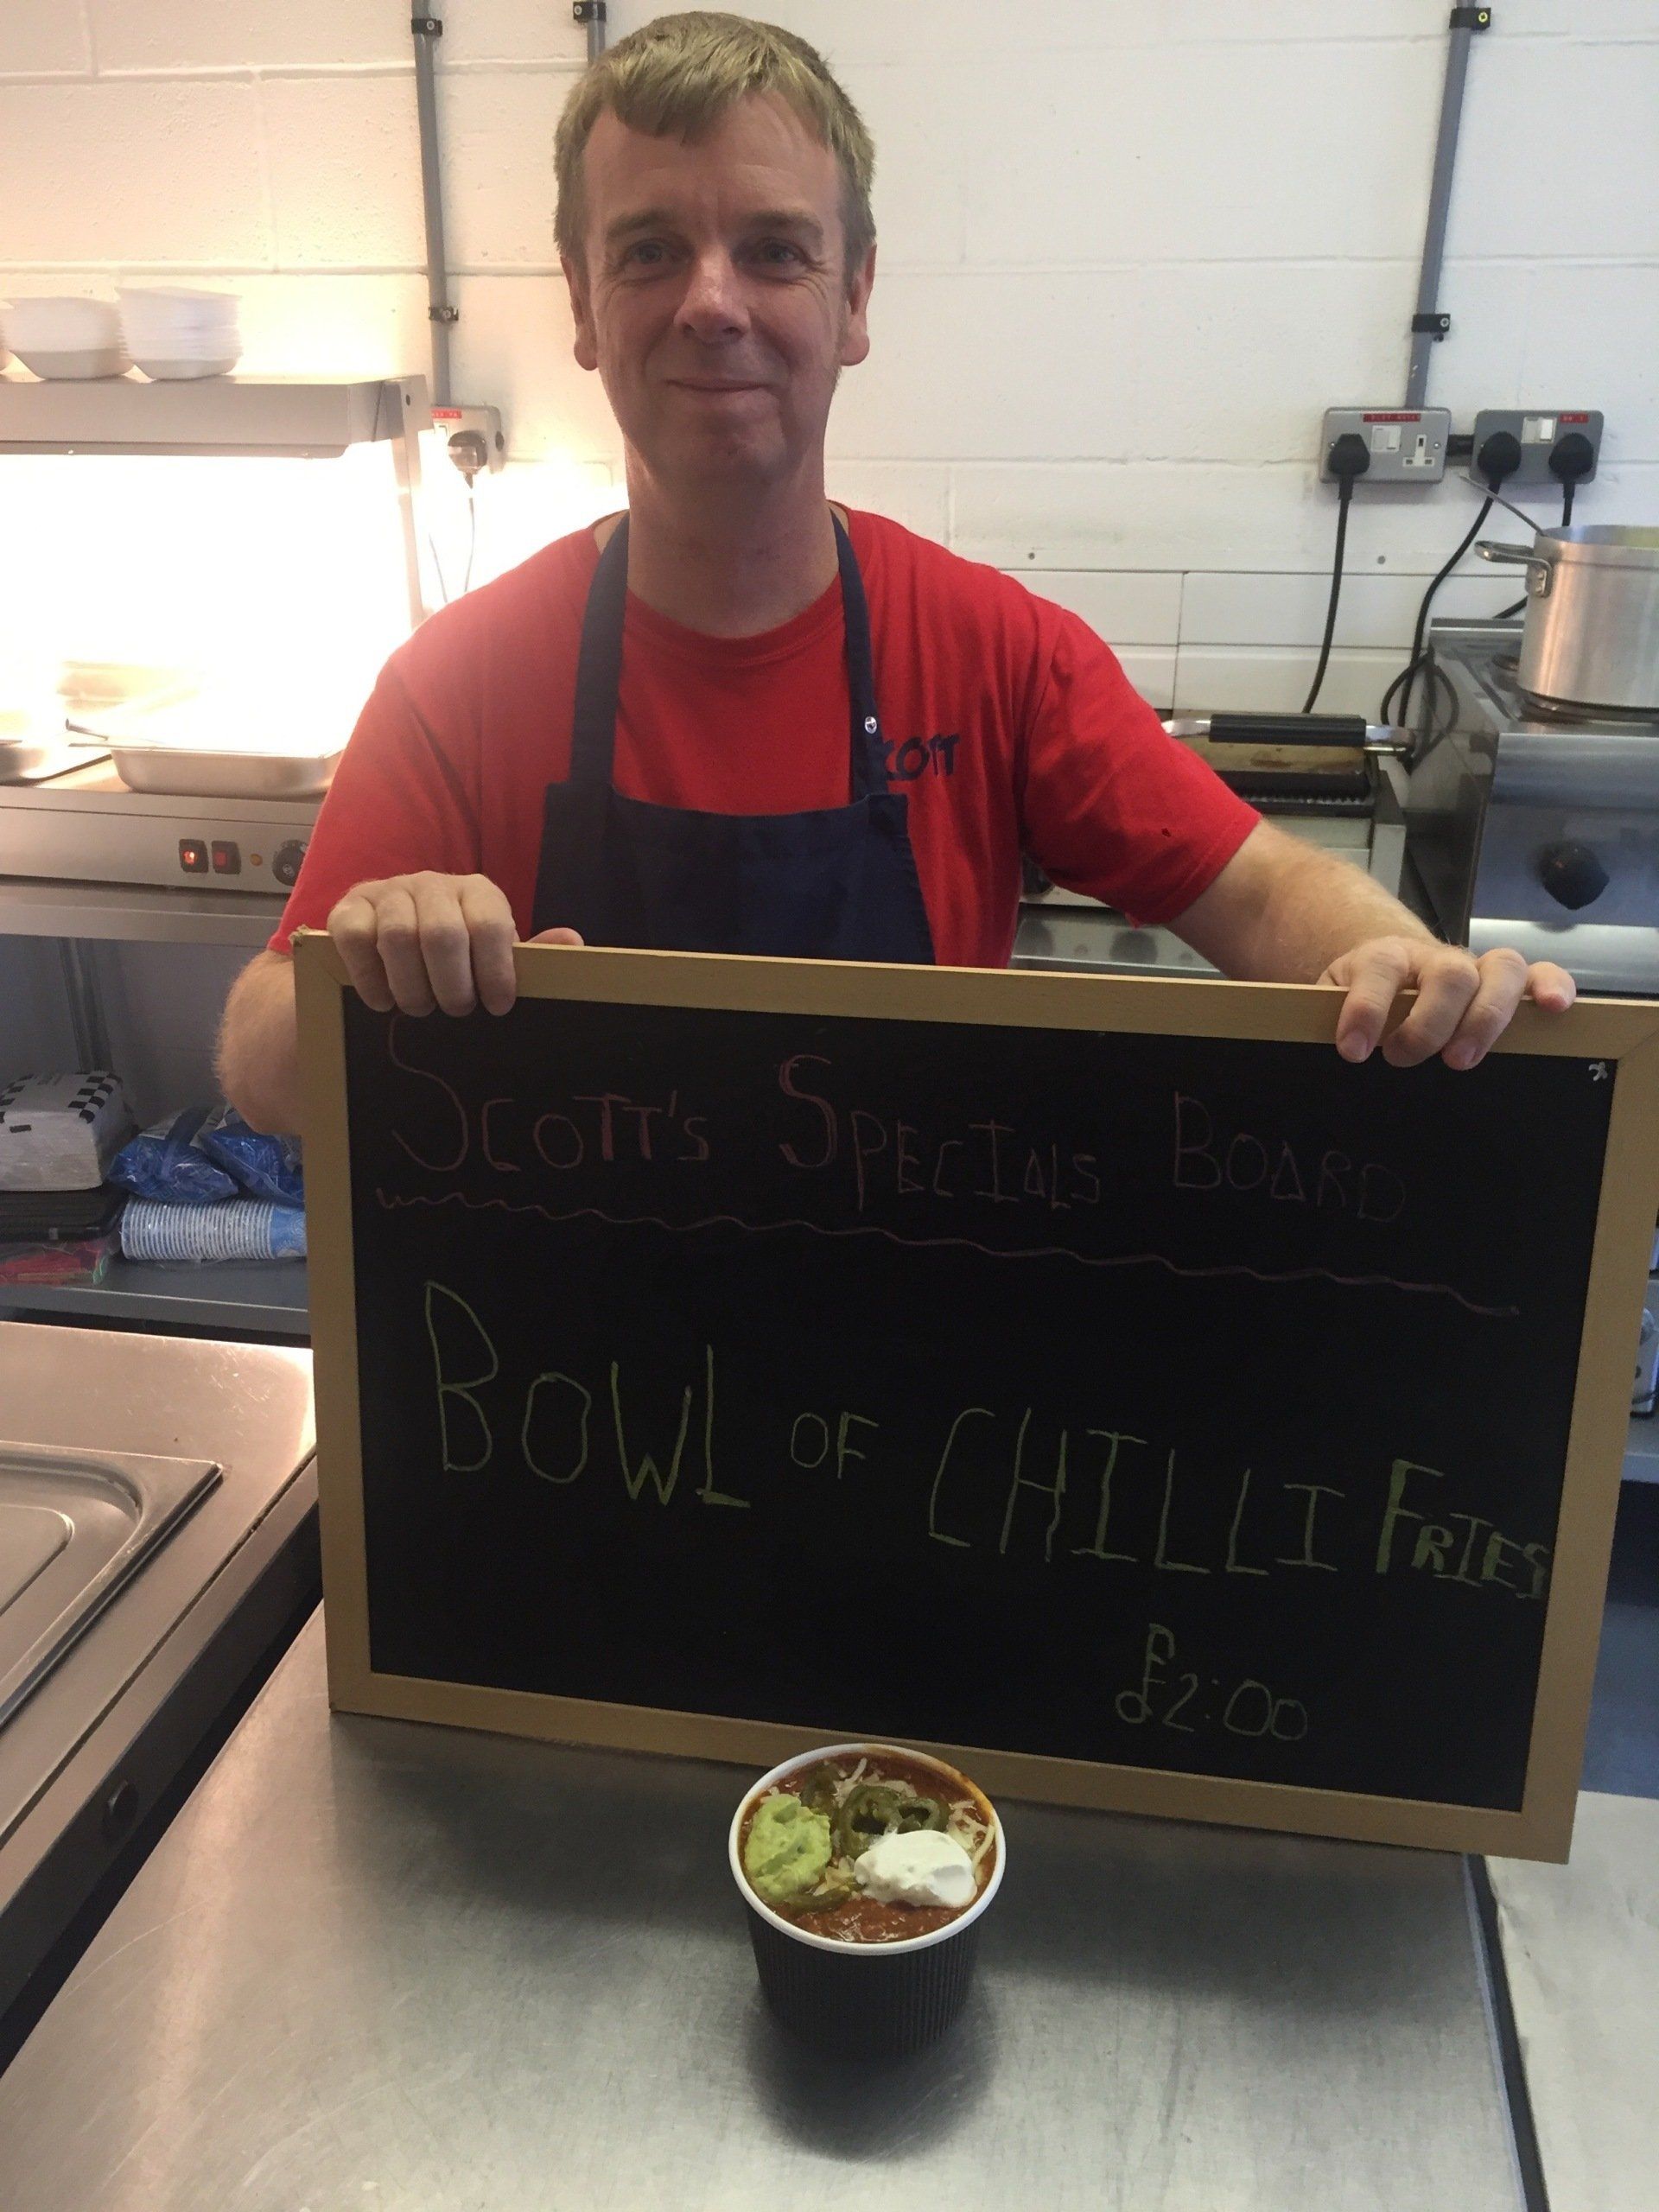 COTT
SCOTT'S SPECIALS BOARD
BOWL OF CHILLI FRIES
£2:00